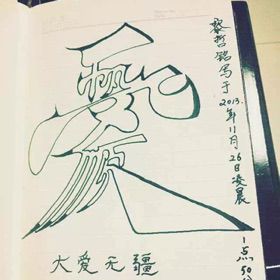 黎哲铭写于2013.年11月26日凌晨
1点50分
大爱无疆